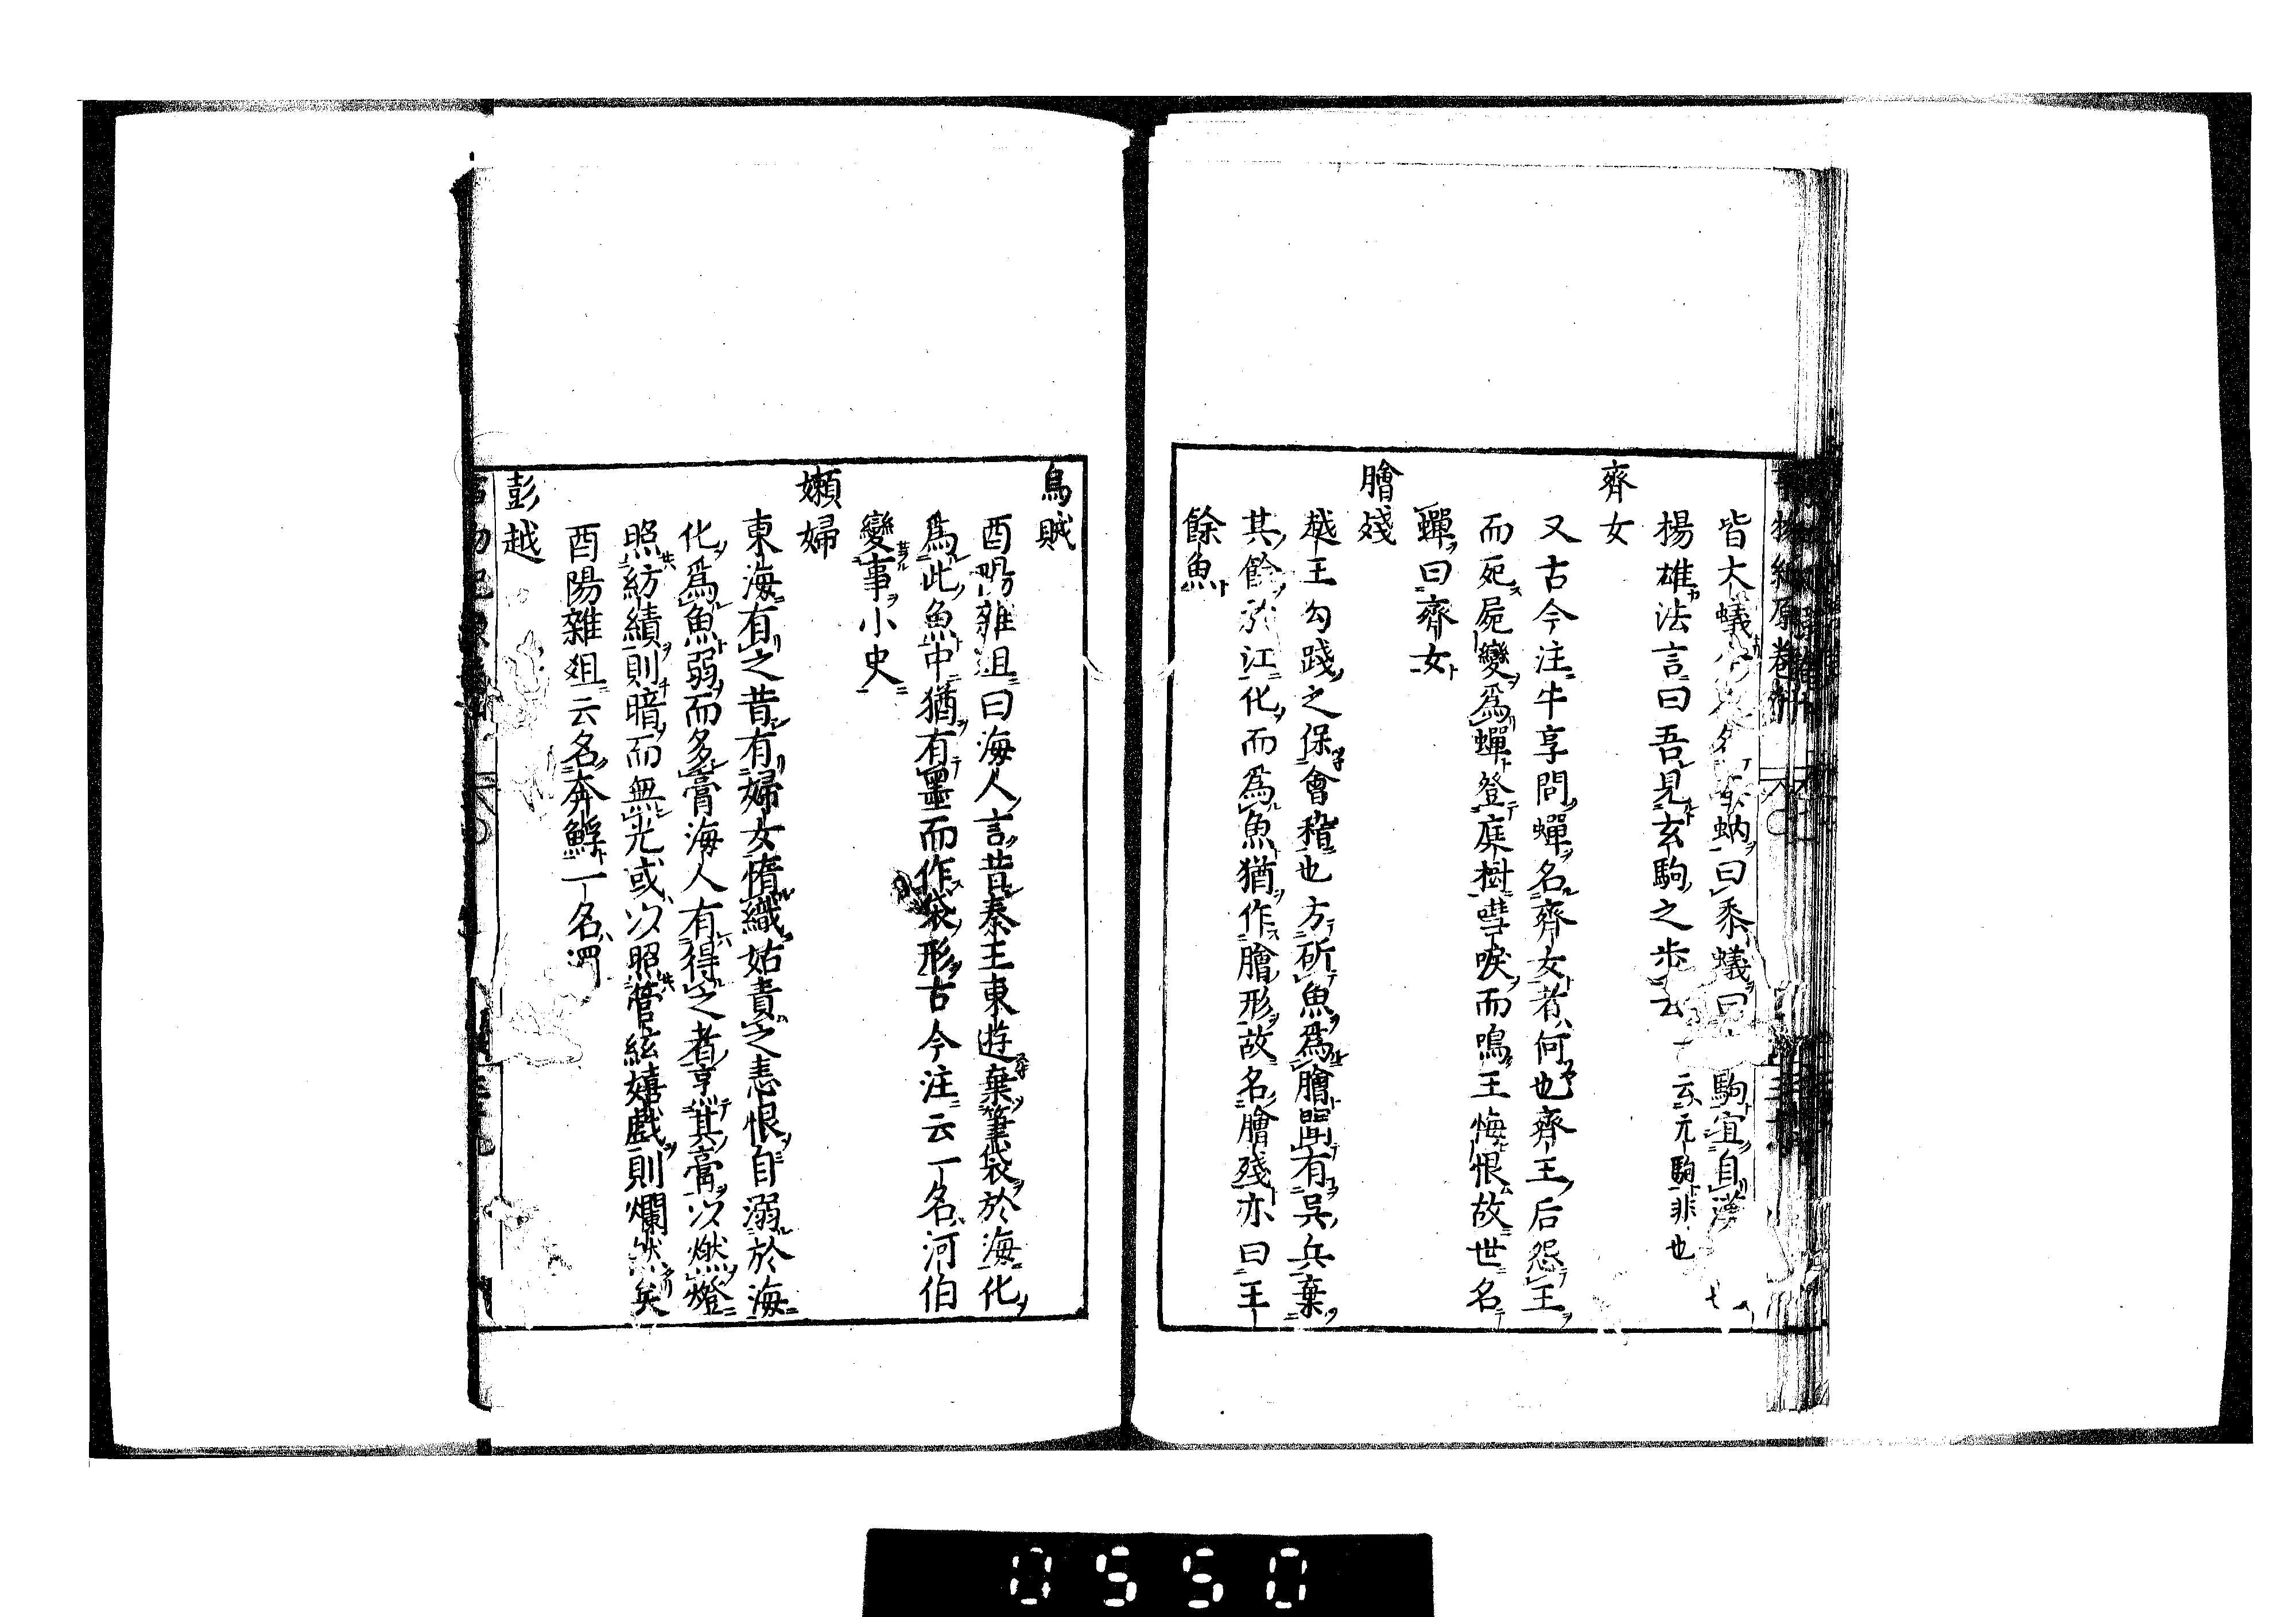 皆大蟻蚋曰黍蟻曰駒宜自
楊雄法言曰吾見玄駒之步云云元駒非也
齊女
又古今注牛享問蟬名齊女者何也齊王后怨王
而死屍變爲蟬登庭樹嘒唳而鳴王悔恨故世名
蟬曰齊女
膾殘
越王勾踐之保會稽也方斫魚爲膾聞有吳兵棄
其餘於江化而爲魚猶作膾形故名膾殘亦曰王
餘魚
烏賊
酉陽雜俎曰海人言昔秦王東遊棄筆袋於海化
爲此魚中猶有墨而作袋形古今注云一名河伯
變事小史
嬾婦
東海有之昔有婦女惰織姑責之恚恨自溺於海
化爲魚弱而多膏海人有得之者烹其膏以燃燈
照紡績則暗而無光或以照管絃嬉戲則爛然矣
酉陽雜俎云名奔䱐一名㴾
彭越
0550